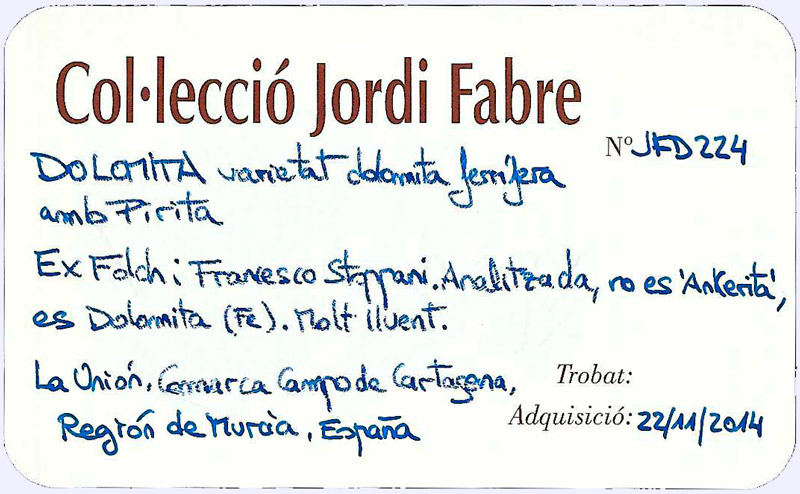 Col·lecció Jordi Fabre
Nº JFD224
DOLOMITA varietat dolomita ferrífera
amb Pirita
Ex Folch i Francesco Stoppani. Analitzada, no es 'Ankerita',
es Dolomita (Fe). Molt lluent.
La Unión, Comarca Campo de Cartagena,
Trobat:
Región de Murcia, España
Adquisició: 22/11/2014